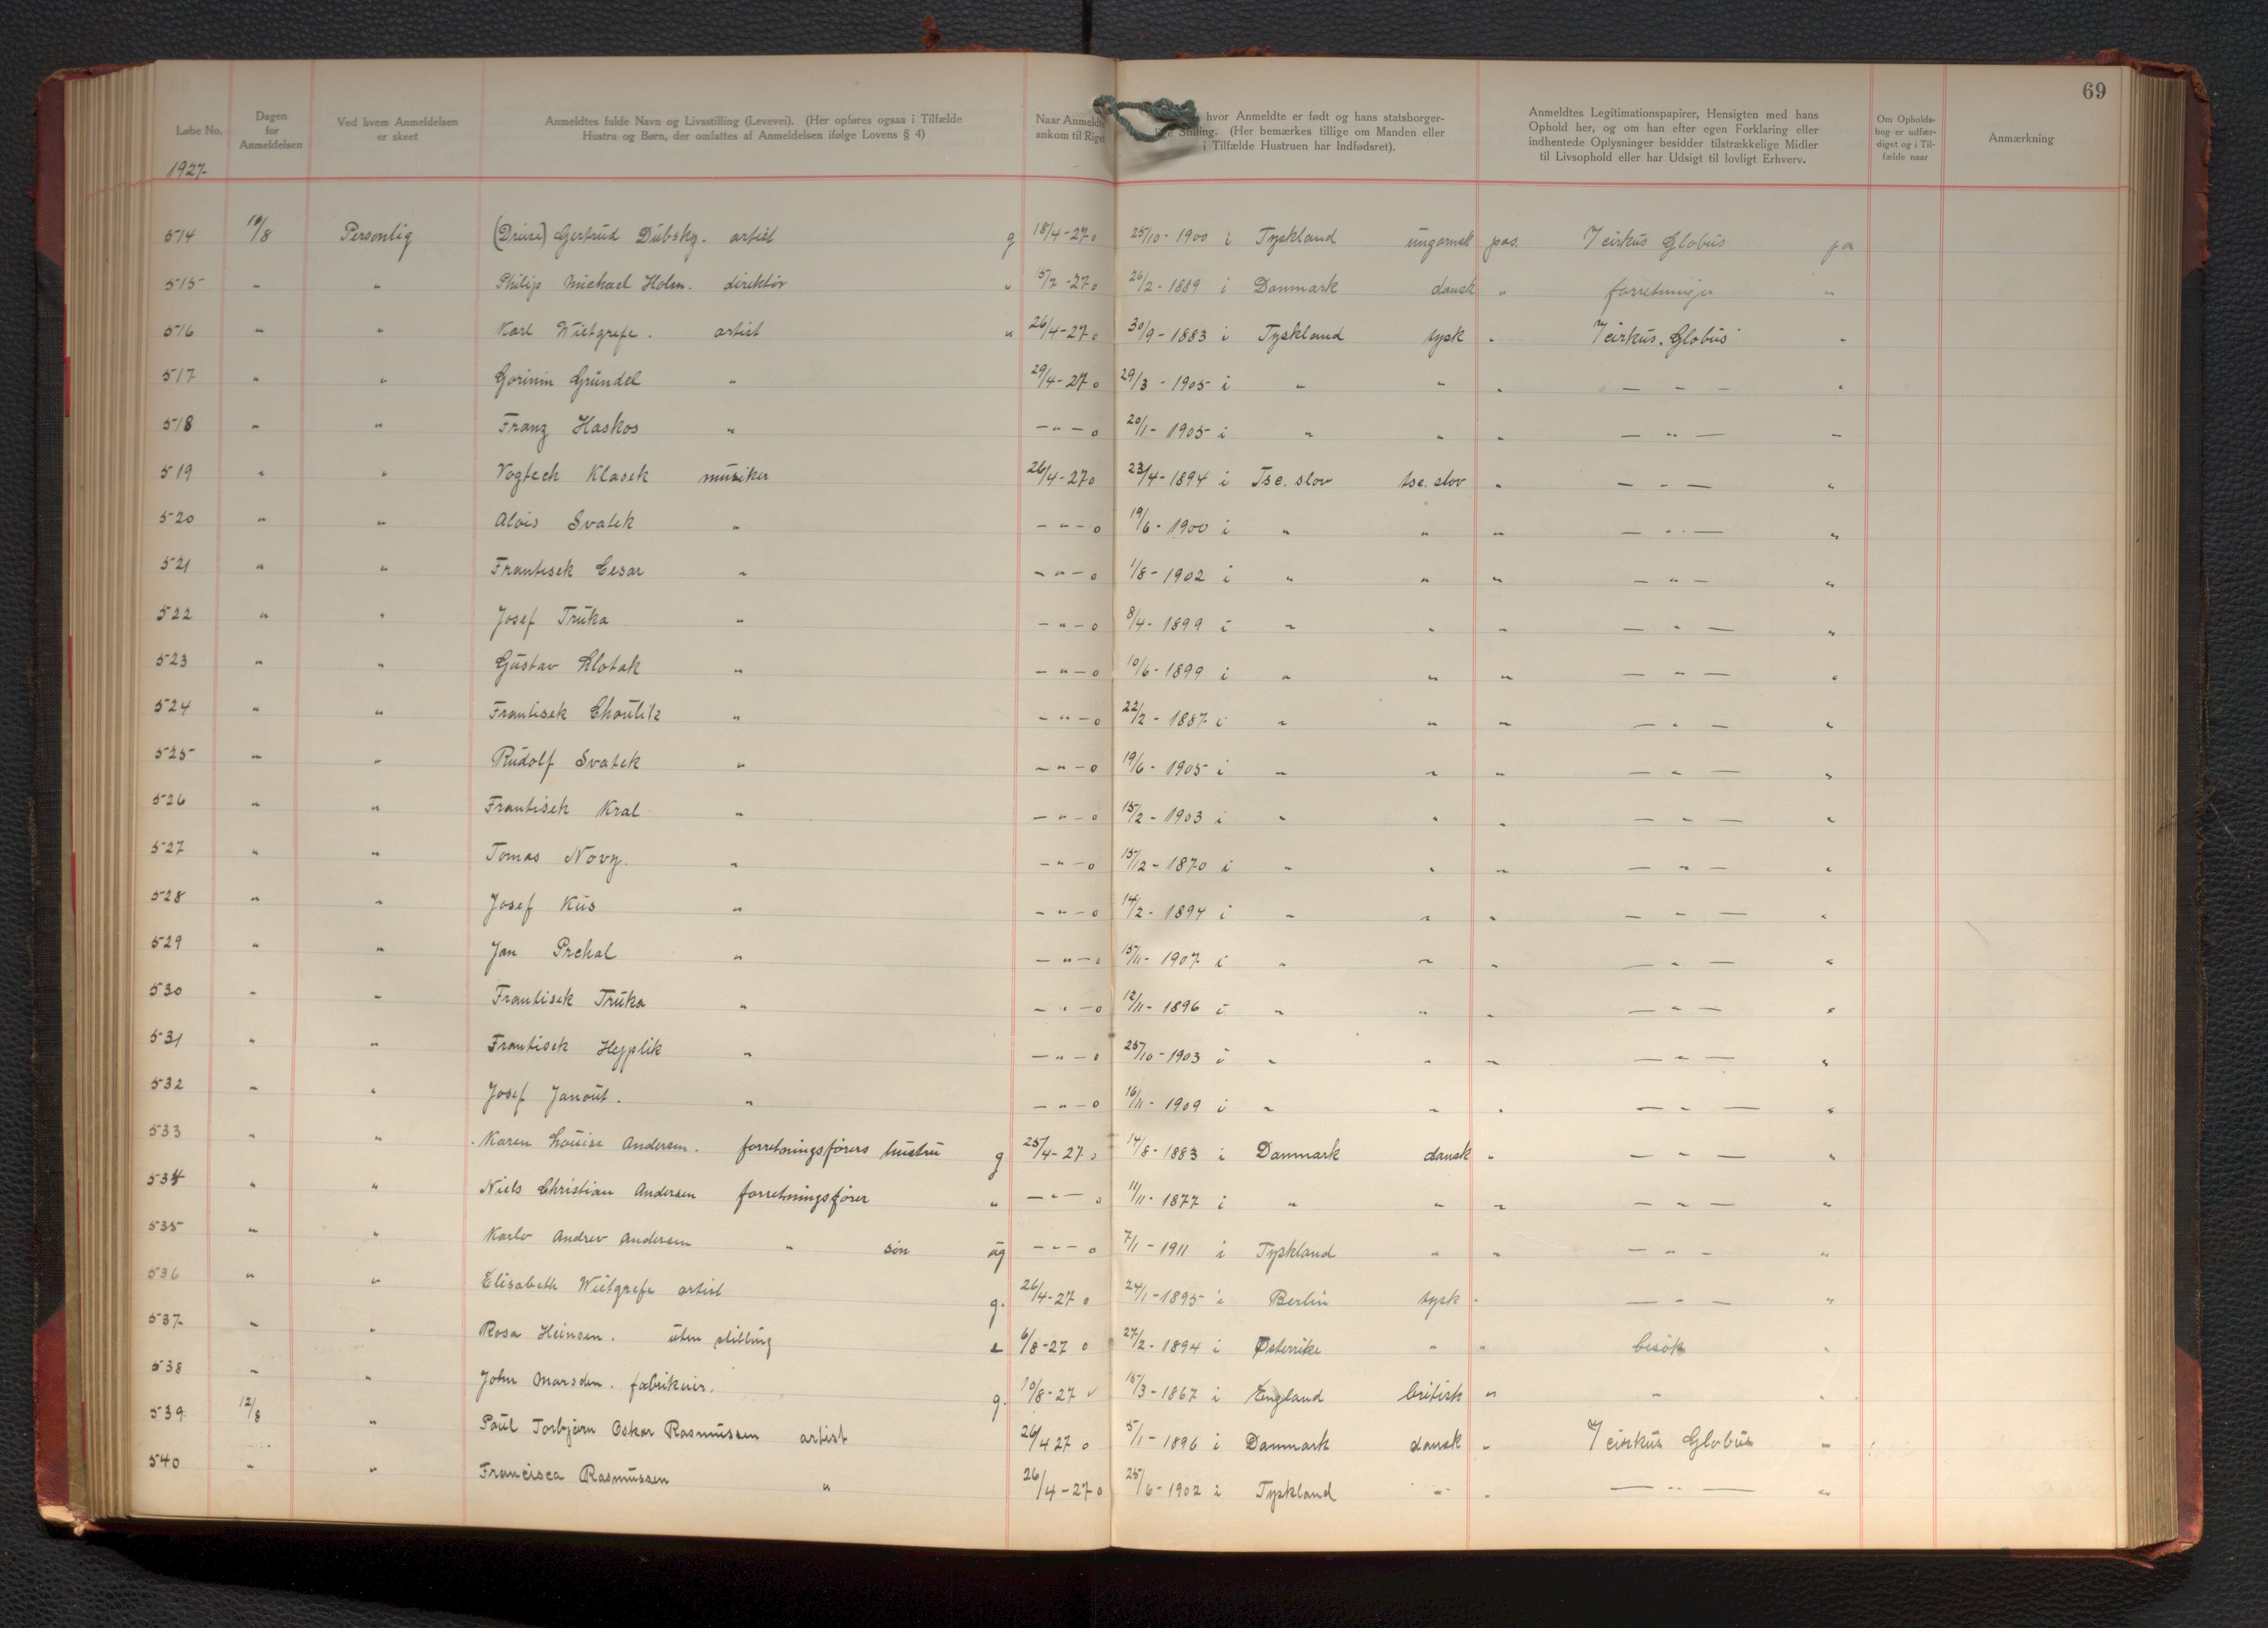 69
Løbe No. Dagen for Anmeldelsen Ved hvem Anmeldelsen er skeet Anmeldtes fulde Navn og Livsstilling (Levevei). (Her opføres ogsaa i Tilfælde Hustru og Børn, der omfattes af Anmeldelsen ifølge Lovens § 4) Naar Anmeldte ankom til Riget hvor Anmeldte er født og hans statsborger- lige Stilling. (Her bemærkes tillige om Manden eller i Tilfælde Hustruen har Indfødsret). Anmeldtes Legitimationspapirer, Hensigten med hans Ophold her, og om han efter egen Forklaring eller indhentede Oplysninger besidder tilstrækkelige Midler til Livsophold eller har Udsigt til lovligt Erhverv. Om Opholds- bog er udfær- diget og i Til- fælde naar Anmærkning
1927
514 10/8 Personlig Gertrud Dubsky. artist g 18/4-27 o 25/10-1900 i Tyskland ungarnsk pas. I cirkus Globus ja
515 " " Philip Michael Holm. direktør " 5/7-27 o 26/2-1889 i Danmark dansk " forretninger "
516 " " Karl Wietgrefe. artist " 26/4-27 o 30/9-1883 i Tyskland tysk " I cirkus. Globus "
517 " " Gründel " 29/4-27 o 29/3-1905 i " " " — " — "
518 " " Franz Haskos " — " — o 20/1-1905 i " " " — " — "
519 " " Vogtech Klasek musiker 26/4-27 o 23/4-1894 i Tsc. slov tsc. slov " — " — "
520 " " Alois Svatek " — " — o 19/6-1900 i " " " — " — "
521 " " Frantisek Cesar " — " — o 1/8-1902 i " " " — " — "
522 " " Josef Truka " — " — o 8/4-1899 i " " " — " — "
523 " " Gustav Klotak " — " — o 10/6-1899 i " " " — " — "
524 " " Frantisek — " — o 22/2-1887 i " " " — " — "
525 " " Rudolf Svatek " — " — o 19/6-1905 i " " " — " — "
526 " " Frantisek Kral " — " — o 15/2-1903 i " " " — " — "
527 " " Tomas Novy. " — " — o 15/12-1870 i " " " — " — "
528 " " Josef Kus " — " — o 14/2-1894 i " " " — " — "
529 " " Jan Prckal " — " — o 15/11-1907 i " " " — " — "
530 " " Frantisek Truka " — " — o 12/11-1896 i " " " — " — "
531 " " Frantisek Hepplik " — " — o 25/10-1903 i " " " — " — "
532 " " Josef Janout. " — " — o 16/11-1909 i " " " — " — "
533 " " Karen Louise Andersen. forretningsførers hustru g 25/4-27 o 14/8-1883 i Danmark dansk " — " — "
534 " " Niels Christian Andersen forretningsfører " — " — o 11/11-1877 i " " " — " — "
535 " " Karlo Andrev Andersen " søn ug — " — o 7/1-1911 i Tyskland " " — " — "
536 " " Elisabeth Wietgrefe artist g. 26/4-27 o 24/1-1895 i Berlin tysk " — " — "
537 " " Rosa Heinsen. uten stilling e 6/8-27 o 27/2-1894 i Østerrike " " besøk "
538 " " John Marsden. fabrikeier. g. 10/8-27 15/3-1867 i England britisk " " "
539 12/8 " Paul Torbjørn Oskar Rasmussen artist 26/4 27 o 5/1-1896 i Danmark dansk " I cirkus Globus "
540 " " Francisca Rasmussen " 26/4-27 o 25/6-1902 i Tyskland " " — " — "